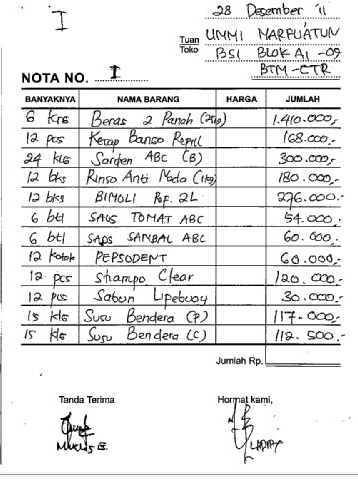 I
28 Desember '11
Tuan UMMI MARFUATUN
Toko BSI BLOK A1 -09
BTM-CTR
NOTA NO. I
BANYAKNYA NAMA BARANG HARGA JUMLAH
6 krg Beras 2 Panah (25kg) 1.410.000,-
12 pcs Kecap Bango Refill 168.000,-
24 klg Sarden ABC (B) 300.000,-
12 bks Rinso Anti Noda (1kg) 180.000,-
12 bks BIMOLI Ref. 2L 276.000,-
6 btl SAUS TOMAT ABC 54.000,-
6 btl SAOS SAMBAL ABC 60.000,-
12 kotak PEPSODENT 60.000,-
12 pcs Shampo Clear 120.000,-
12 pcs Sabun Lipebuoy 30.000,-
15 klg Susu Bendera (P) 117.000,-
15 klg Susu Bendera (C) 112.500,-
Jumlah Rp.
Tanda Terima Hormat kami,